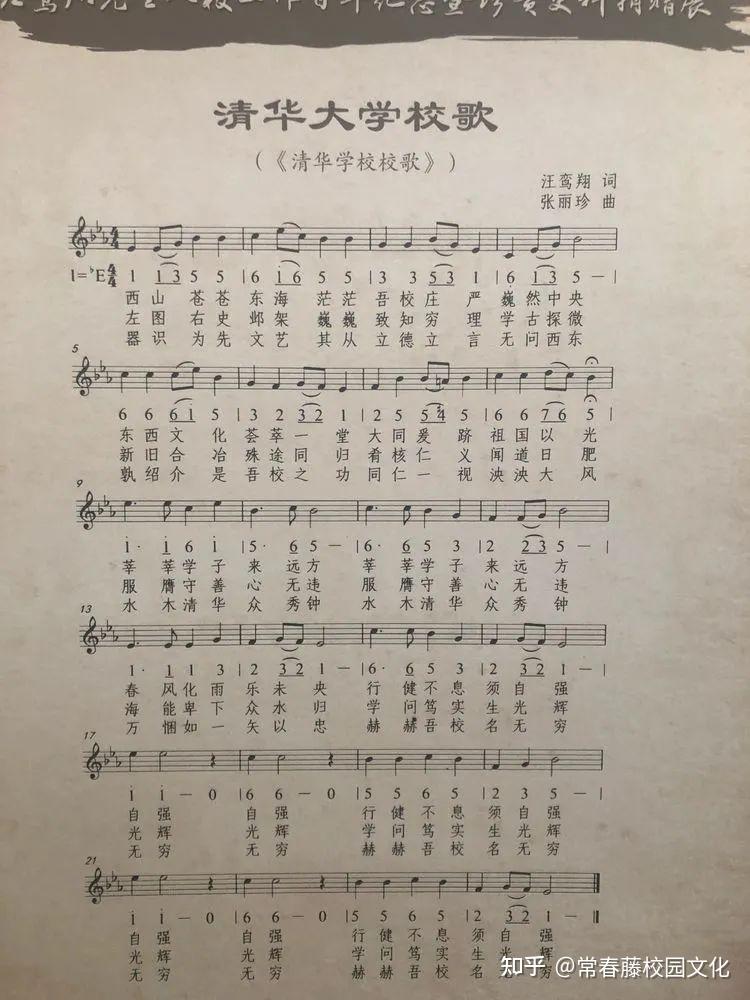 汪鸾翔先生
史料捐赠展
清华大学校歌
(《清华学校校歌》)
汪鸾翔 词
张丽珍 曲
1=♭E 4/4 1 13 5 5 | 6 i6 5 5 | 3 3 53 1 | 6 13 5 — |
西山 苍苍 东海 茫茫 吾校庄 严 巍 然中央
左图 右史 邺架 巍巍 致知穷 理 学 古探微
器识 为先 文艺 其从 立德立 言 无 问西东
5
6 6 6i 5 | 3 2 32 1 | 2 5 5♯4 5 | 6 6 76 5 |
东西文 化 荟萃一 堂 大同爰 跻 祖国以 光
新旧合 冶 殊途同 归 肴核仁 义 闻道日 肥
孰绍介 是 吾校之 功 同仁一 视 泱泱大 风
9
i· i 6 i | 5· 6 5 — | 6· 6 5 3 | 2 23 5 — |
莘 莘学子 来 远方 莘 莘学子 来 远 方
服 膺守善 心 无违 服 膺守善 心 无 违
水 木清华 众 秀钟 水 木清华 众 秀 钟
13
1· 1 1 3 | 2 32 1 — | 6· 6 5 3 | 2 32 1 — |
春 风化雨 乐 未 央 行 健不息 须 自 强
海 能卑下 众 水 归 学 问笃实 生 光 辉
万 悃如一 矢 以 忠 赫 赫吾校 名 无 穷
17
i i — 0 | 6 6 — 0 | 5 5 6 5 | 2 3 5 — |
自强 自强 行健不息 须自强
光辉 光辉 学问笃实 生光辉
无穷 无穷 赫赫吾校 名无穷
21
i i — 0 | 6 6 — 0 | 5 5 6 5 | 2 32 1 — ‖
自强 自强 行健不息 须自 强
光辉 光辉 学问笃实 生光 辉
无穷 无穷 赫赫吾校 名无 穷
知乎 @常春藤校园文化